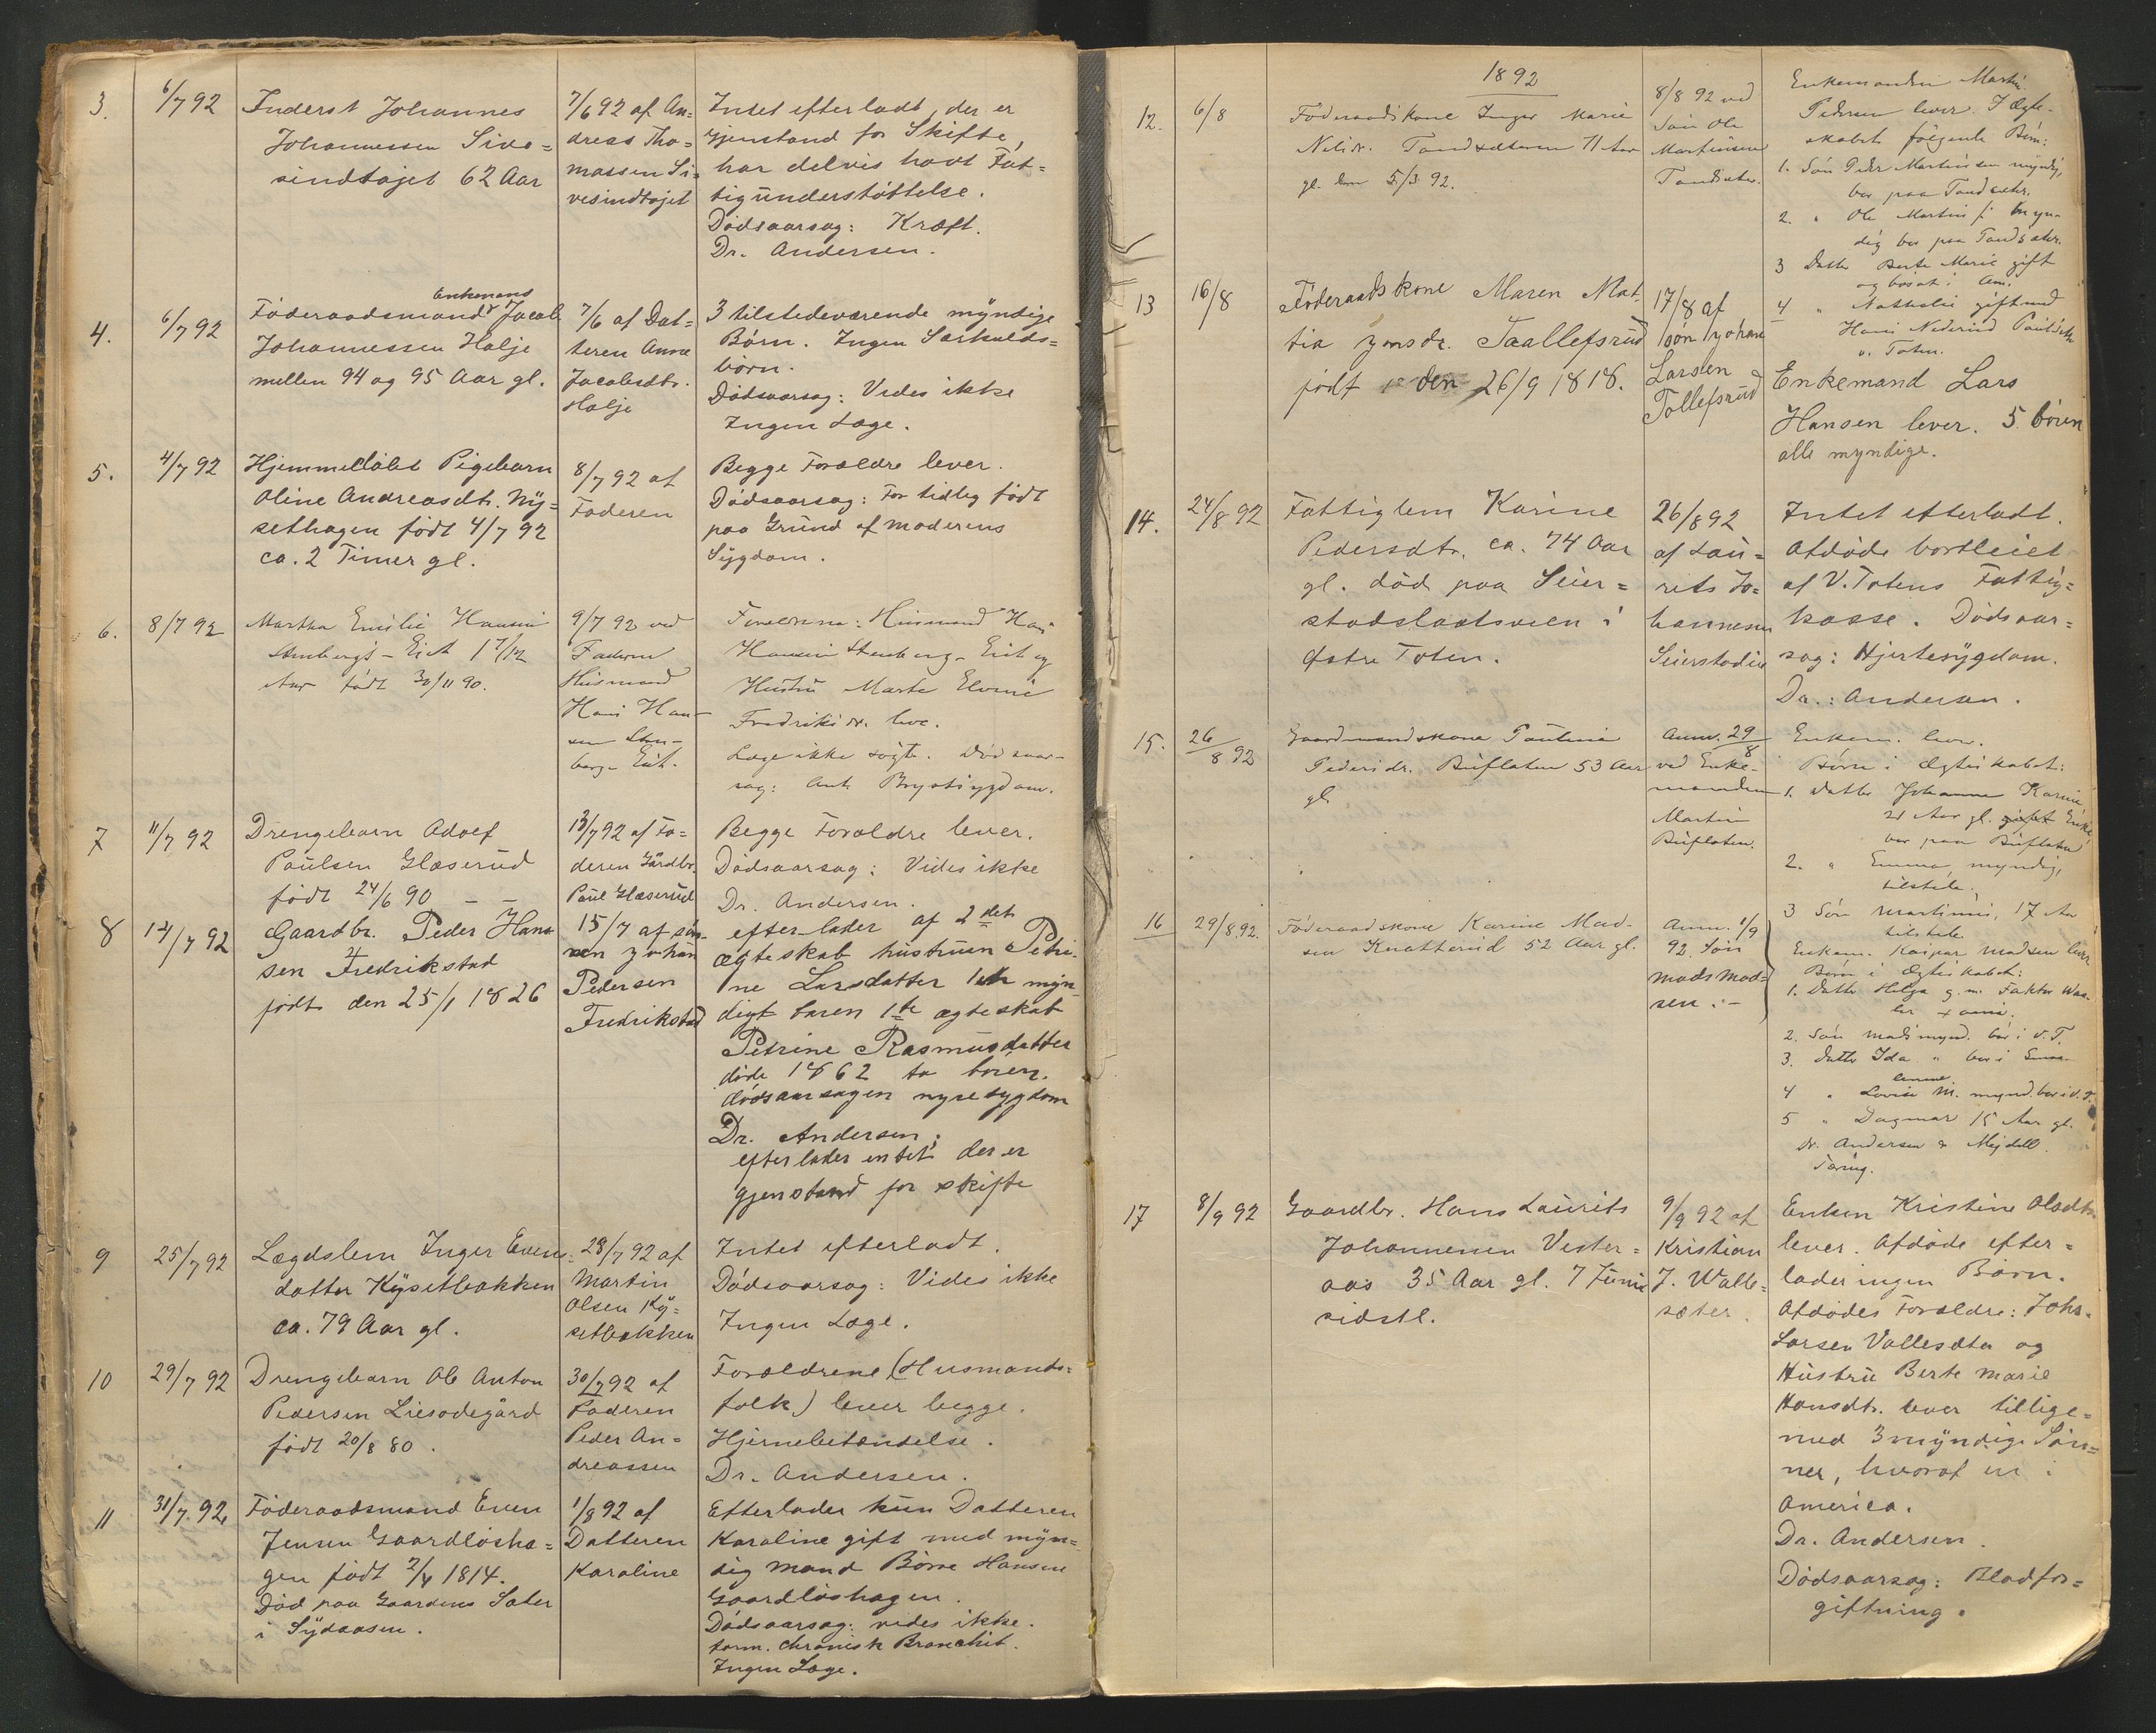 3. 6/7 92 Inderst Johannes
Johannessen Sive=
sindtøjet 62 Aar
7/6 92 af An=
dreas Tho=
massen Si=
vesindtøjet
Intet efterladt, der er
Gjenstand for Skifte,
har delvis havt Fat=
tigunderstøttelse.
Dødsaarsag: Kræft.
Dr. Andersen.
4. 6/7 92 Enkemand
Føderaadsmand Jacob
Johannessen Halje
mellem 94 og 95 Aar gl.
7/6 af Dat=
teren Anne
Jacobsdtr.
Halje
3 tilstedeværende myndige
Børn. Ingen Særkulds=
børn.
Dødsaarsag: Vides ikke
Ingen Læge.
5. 4/7 92 Hjemmedøbt Pigebarn
Oline Andreasdtr. Ny=
sethagen født 4/7 92
ca. 2 Timer gl.
8/7 92 af
Faderen
Begge Forældre lever.
Dødsaarsag: For tidlig født
paa Grund af Moderens
Sygdom.
6. 8/7 92 Martha Emilie Hansen
Stenbergs-Eiet 1 7/12
Aar født 30/11 90.
9/7 92 ved
Faderen
Husmand
Hans Han-
sen Sten-
bergs Eiet.
Forældrene: Husmand Hans
Hansen Stenberg-Eiet og
Hustru Marte Elvine
Fredriksdr. leve.
Læge ikke søgt. Dødsaar-
sag: Ant. Brystsygdom.
7 11/7 92 Drengebarn Adolf
Paulsen Glæserud
født 24/6 90
13/7 92 af Fa=
deren Gårdbr.
Paul Glæserud
Begge Forældre lever.
Dødsaarsag: Vides ikke
Dr. Andersen.
8 14/7 92 Gaardbr. Peder Han
sen Fredrikstad
født den 25/1 1826
15/7 af søn
nen Johan
Pedersen
Fredrikstad
efterlader af 2det
ægteskab hustruen Petri
ne Larsdatter 1et myn
digt baren 1te ægteskab
Petrine Rasmusdatter
døde 1862 to boren.
dødsaarsagen nyresygdom
Dr. Andersen;
efterlader entet der er
gjenstand for skifte
9 25/7 92 Lægdslem Inger Evens=
datter Kysetbakken
ca. 79 Aar gl.
28/7 92 af
Martin
Olsen Ky=
setbakken
Intet efterladt.
Dødsaarsag: Vides ikke
Ingen Læge.
10 29/7 92 Drengebarn Ole Anton
Pedersen Liesødegård
født 20/8 80.
30/7 92 af
Faderen
Peder An=
dreassen
Forældrene (Husmands=
folk) lever begge.
Hjernebetændelse.
Dr. Andersen.
11 31/7 92, Føderaadsmand Even
Jensen Gaardløsha=
gen født 2/4 1814.
Død paa Gaardens Sæter
i Sydaasen.
1/8 92 af
Datteren
Karoline
Efterlader kun Datteren
Karoline gift med myn=
dig Mand Børre Hansen
Gaardløshagen.
Dødsaarsag: vides ikke.
form. chronisk Bronchit.
Ingen Læge.
1892
12. 6/8 Føderaadskone Inger Marie
Nilsdr. Tandsæteren 71 Aar
gl. den 5/3 92.
8/8 92 ved
Søn Ole
Martinsen
Tandsæter.
Enkemanden Martin
Pedersen lever. I Ægte-
skabet følgende Børn:
1. Søn Peder Martinsen myndig,
bor paa Tandsæter.
2. " Ole Martins f. myn-
dig bor paa Tandsæter.
3 Datter Berte Marie gift
og bosat i Am.
4 " Nathalie gift med
Hans Nederud
v. Toten.
13 16/8 Føderaadskone Maren Mat
tia Jonsdr. Taallefsrud
født den 26/9 1818.
17/8 af
søn Johan
Larsen
Tollefsrud
Enkemand Lars
Hansen lever. 5 børen
alle myndige.
14. 24/8 92 Fattiglem Karine
Pedersdtr. ca. 74 Aar
gl. død paa Seier=
stadslaatsveen i
Østre Toten.
26/8 92
af Lau=
rits Jo=
hannesen
Seierstadsv
Intet efterladt.
Afdøde bortleiet
af V. Totens Fattig=
kasse. Dødsaar=
sag: Hjertesygdom.
Dr.: Andersen.
15. 26/8 92 Gaardmandskone Pauline
Pedersdr. Buflaten 53 Aar
gl.
Anm. 29/8
ved Enke-
manden
Martin
Buflaten.
Enkem. lever.
Børn i Ægteskabet:
1. Datter Johanne Karine,
21 Aar gl. gift Enke
bor paa Buflaten
2. " Emma, myndig,
tilstede.
3 Søn Martinius, 17 Aar
tilstede
16 29/8 92. Føderaadskone Karine Mad-
sen Knatterud 52 Aar gl.
Anm. 1/9
92. Søn
Mads Mad=
sen.-
Enkem. Kaspar Madsen lever
Børn i Ægteskabet:
1. Datter Helga g. m. Faktor
2. Søn Mads mynd. bor i V. T.
3. Datter Ida " bor i
4 " Lovise M. mynd. bor i V. T.
5 " Dagmar 15 Aar gl.
Dr. Andersen & Mejdell.
Tæring.
17 8/9 92 Gaardbr. Hans Laurits
Johannesen Vester=
aas 35 Aar gl. 7 Juni
sidstl.
9/9 92 af
Kristian
J. Walle=
sæter.
Enken Kristine Olsdtr.
lever. Afdøde efter=
lader ingen Børn.
Afdødes Forældre: Johs.
Larsen Vallesæter og
Hustru Berte Marie
Hansdtr. lever tillige=
med 3 myndige Søn=
ner, hvoraf en i
America.
Dr. Andersen.
Dødsaarsag: Blodfor=
giftning.